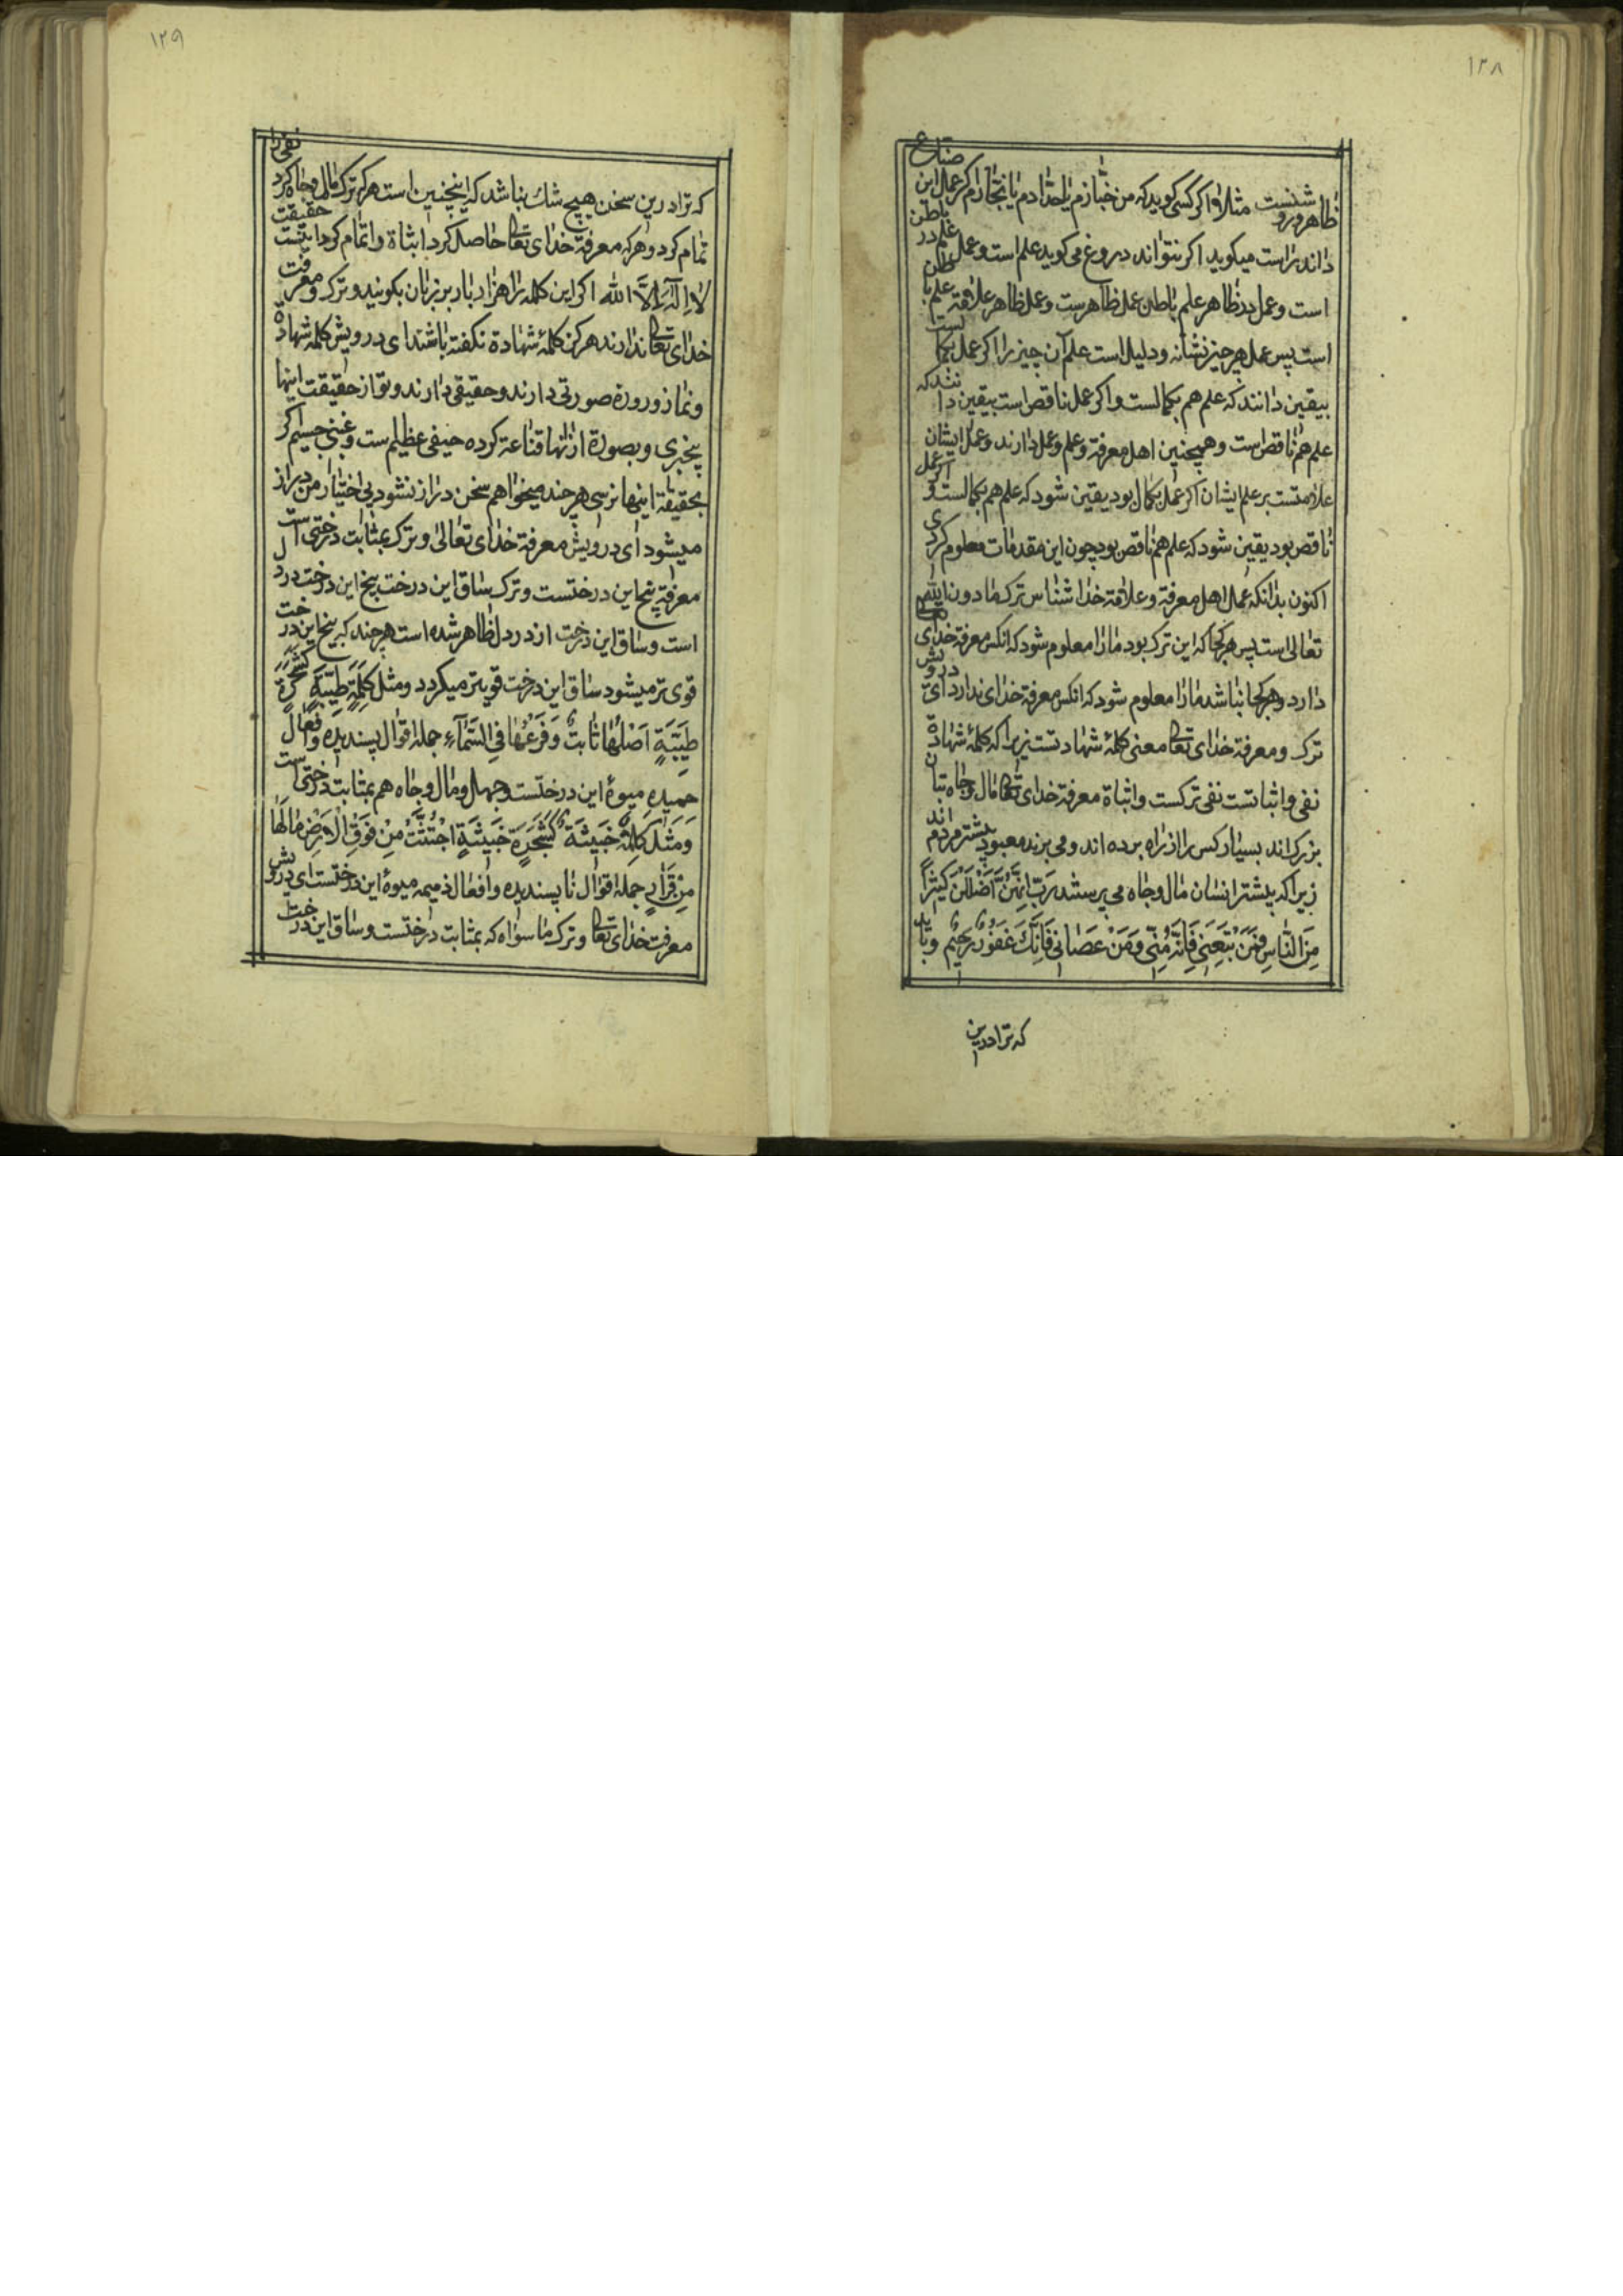 ١٢٨
ظاهر و روشنست مثلا و اکر کسی کوید که من خبازم یا حدادم یا نجارم اکر عمل این صناع
داند راست میکوید اکر نتواند دروغ می کوید علم است و عمل علم در باطن
است و عمل در ظاهر علم باطن عمل ظاهرست و عمل ظاهر علاقهٔ علم باطن
است پس عمل هر چیز نشانه و دلیل است علم آن چیز را اکر عمل بکمالست
بیقین دانند که علم هم بکمالست و اکر عمل ناقص است بیقین دانند که
علم هم ناقص است و همچنین اهل معرفة و علم و عمل دارند و عمل ایشان
علامتست بر علم ایشان اکر عمل بکمال بود یقین شود که علم هم بکمالست و اکر عمل
ناقص بود یقین شود که علم هم ناقص بود چون این مقدمات معلوم کردی
اکنون بدانکه عمل اهل معرفة و علاقهٔ خدا شناس ترک مادون الله
تعالی است پس هر کجا که این ترک بود مارا معلوم شود که انکس معرفة خدای
دارد و هر کجا نباشد مارا معلوم شود که انکس معرفة خدای ندارد ای درویش
ترک و معرفة خدای تعالی معنی کلمهٔ شهادتست زیرا که کلمهٔ شهادة
نفی و اثباتست نفی ترکست و اثباة معرفة خدای تعالی مال و جاه بتان
بزرک اند بسیار کس را از راه برده اند و می برند معبود بیشتر مردم اند
زیرا که بیشتر انسان مال و جاه می پرستند رَبِّ اِنَّهُنَّ اَضْلَلْنَ کَثِیرًا
مِنَ النَّاسِ فَمَنْ تَبِعَنِی فَاِنَّهُ مِنِّی وَمَنْ عَصَانِی فَاِنَّکَ غَفُورٌ رَحِیمٌ و باید
که ترا درین
١٢٩
که ترا درین سخن هیچ شک نباشد که اینچنین است هر که ترک مال و جاه کرد نفی را
تمام کرد و هر که معرفة خدای تعالی حاصل کرد اثباة را تمام کرد اینست حقیقت
لا اِلٰهَ اِلَّا الله اکر این کلمه را هزار بار بر زبان بکویند و ترک و معرفت
خدای تعالی ندارند هرکز کلمهٔ شهادة نکفته باشند ای درویش کلمه شهادة
و نماز و روزه صورتی دارند و حقیقی دارند و تو از حقیقت اینها
بیخبری و بصورة از انها قناعة کرده حیفی عظیم ست و غبنی جسیم اکر
بحقیقة اینها نرسی هر چند میخواهم سخن دراز نشود بی اختیار من دراز
میشود ای درویش معرفة خدای تعالی و ترک بمثابت درختی است
معرفة بیخ این درختست و ترک ساق این درخت بیخ این درخت در دل
است و ساق این درخت از در دل ظاهر شده است هر چند که بیخ این درخت
قوی تر میشود ساق این درخت قویتر میکردد ومثل کَلِمَةٍ طَیِّبَةٍ کَشَجَرَةٍ
طَیِّبَةٍ اَصْلُهَا ثَابِتٌ وَفَرْعُهَا فِی السَّمَاءِ جمله اقوال پسندیده و افعال
حمیده میوهٔ این درختست و جهل و مال و جاه هم بمثابت درختی ست
وَمَثَلُ کَلِمَةٍ خَبِیثَةٍ کَشَجَرَةٍ خَبِیثَةٍ اجْتُثَّتْ مِنْ فَوْقِ الْاَرْضِ مَا لَهَا
مِنْ قَرَارٍ جمله اقوال ناپسندیده و افعال ذمیمه میوهٔ این درختست ای درویش
معرفت خدای تعالی و ترک ما سواه که بمثابت درختست و ساق این درخت